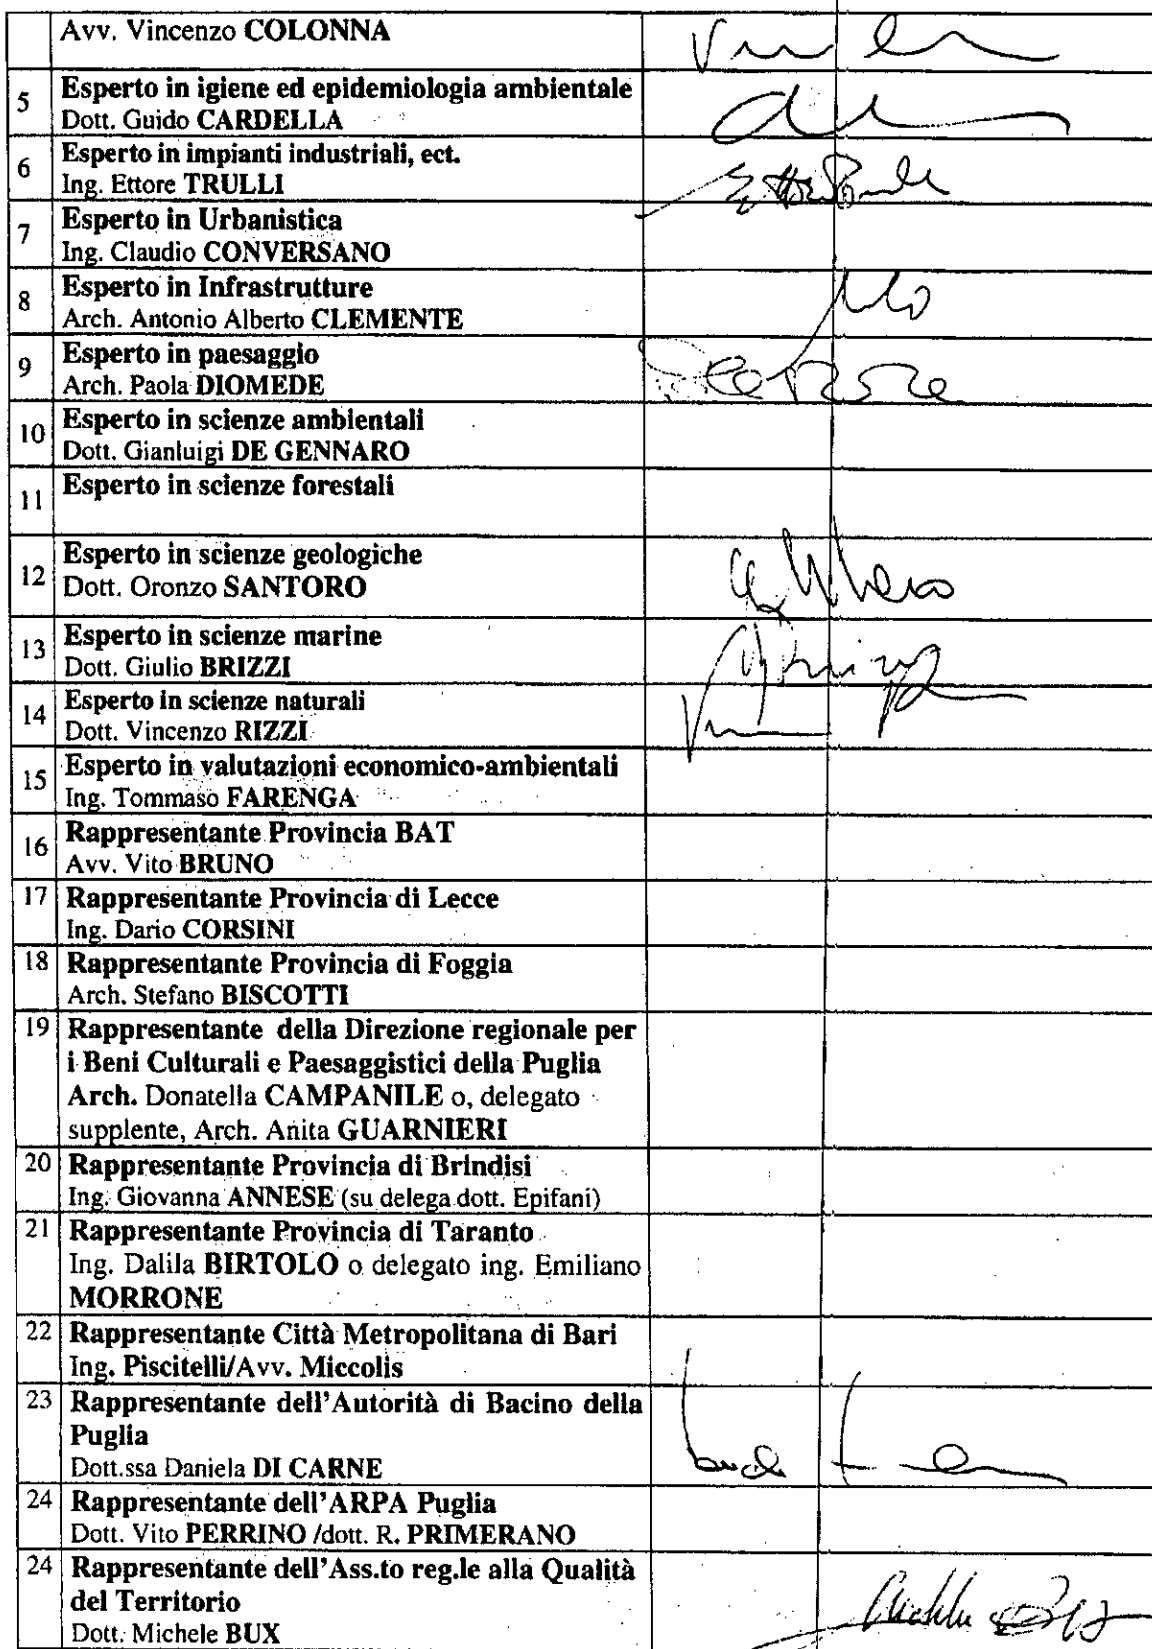 Avv. Vincenzo COLONNA
5 Esperto in igiene ed epidemiologia ambientale
Dott. Guido CARDELLA
6 Esperto in impianti industriali, ect.
Ing. Ettore TRULLI
7 Esperto in Urbanistica
Ing. Claudio CONVERSANO
8 Esperto in Infrastrutture
Arch. Antonio Alberto CLEMENTE
9 Esperto in paesaggio
Arch. Paola DIOMEDE
10 Esperto in scienze ambientali
Dott. Gianluigi DE GENNARO
11 Esperto in scienze forestali
12 Esperto in scienze geologiche
Dott. Oronzo SANTORO
13 Esperto in scienze marine
Dott. Giulio BRIZZI
14 Esperto in scienze naturali
Dott. Vincenzo RIZZI
15 Esperto in valutazioni economico-ambientali
Ing. Tommaso FARENGA
16 Rappresentante Provincia BAT
Avv. Vito BRUNO
17 Rappresentante Provincia di Lecce
Ing. Dario CORSINI
18 Rappresentante Provincia di Foggia
Arch. Stefano BISCOTTI
19 Rappresentante della Direzione regionale per
i Beni Culturali e Paesaggistici della Puglia
Arch. Donatella CAMPANILE o, delegato
supplente, Arch. Anita GUARNIERI
20 Rappresentante Provincia di Brindisi
Ing. Giovanna ANNESE (su delega dott. Epifani)
21 Rappresentante Provincia di Taranto
Ing. Dalila BIRTOLO o delegato ing. Emiliano
MORRONE
22 Rappresentante Città Metropolitana di Bari
Ing. Piscitelli/Avv. Miccolis
23 Rappresentante dell'Autorità di Bacino della
Puglia
Dott.ssa Daniela DI CARNE
24 Rappresentante dell'ARPA Puglia
Dott. Vito PERRINO /dott. R. PRIMERANO
24 Rappresentante dell'Ass.to reg.le alla Qualità
del Territorio
Dott. Michele BUX